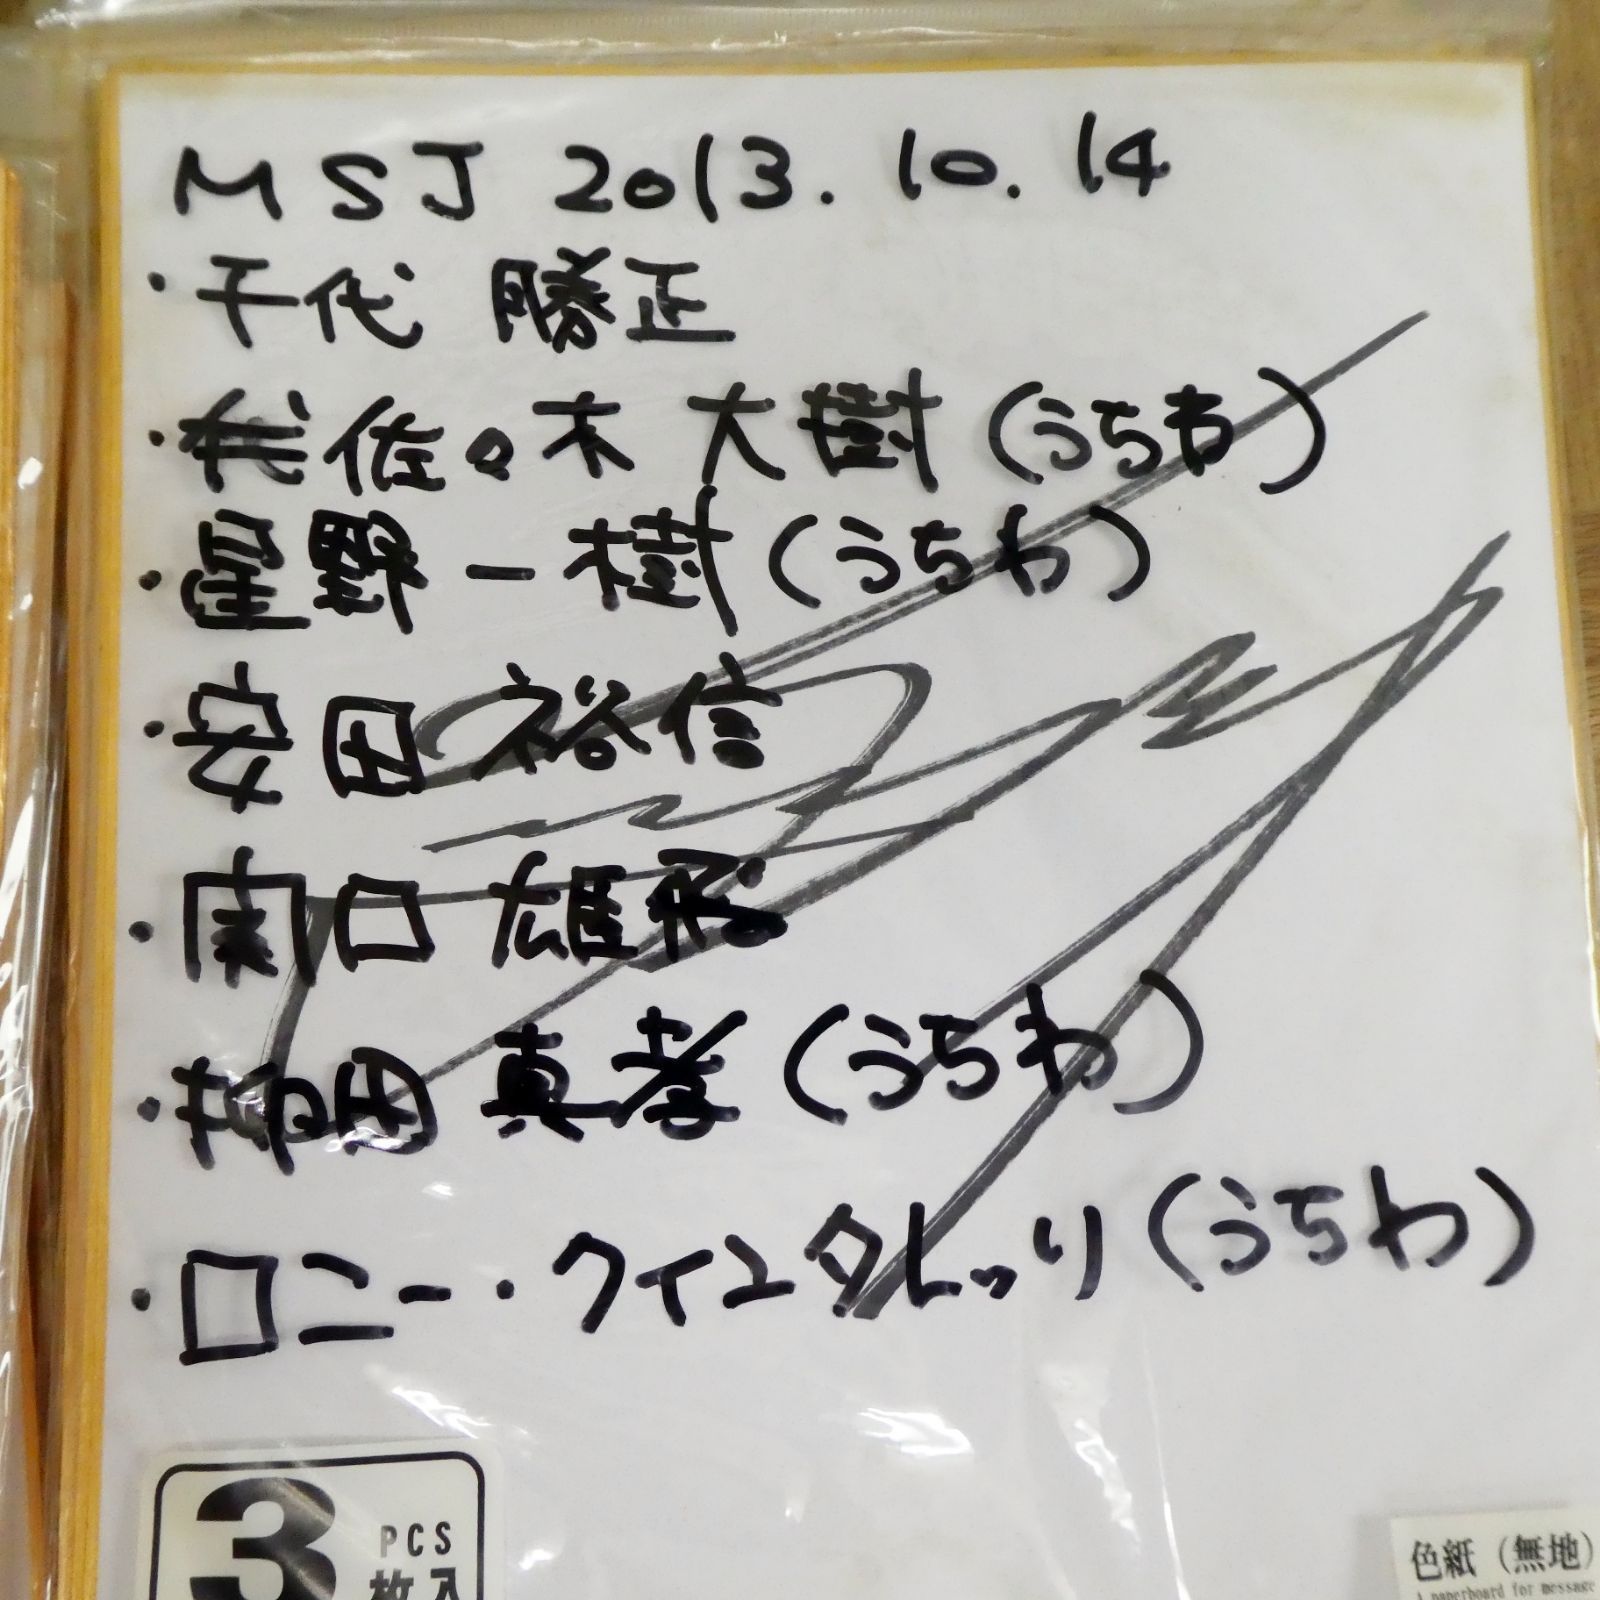 MSJ 2013.10.14
・千代 勝正
・佐々木 大樹(うちわ)
・星野 一樹(うちわ)
・安田 裕信
・関口 雄飛
・柳田 真孝(うちわ)
・ロニー・クインタレッリ(うちわ)
3 PCS
枚入
色紙(無地)
A paperboard for message